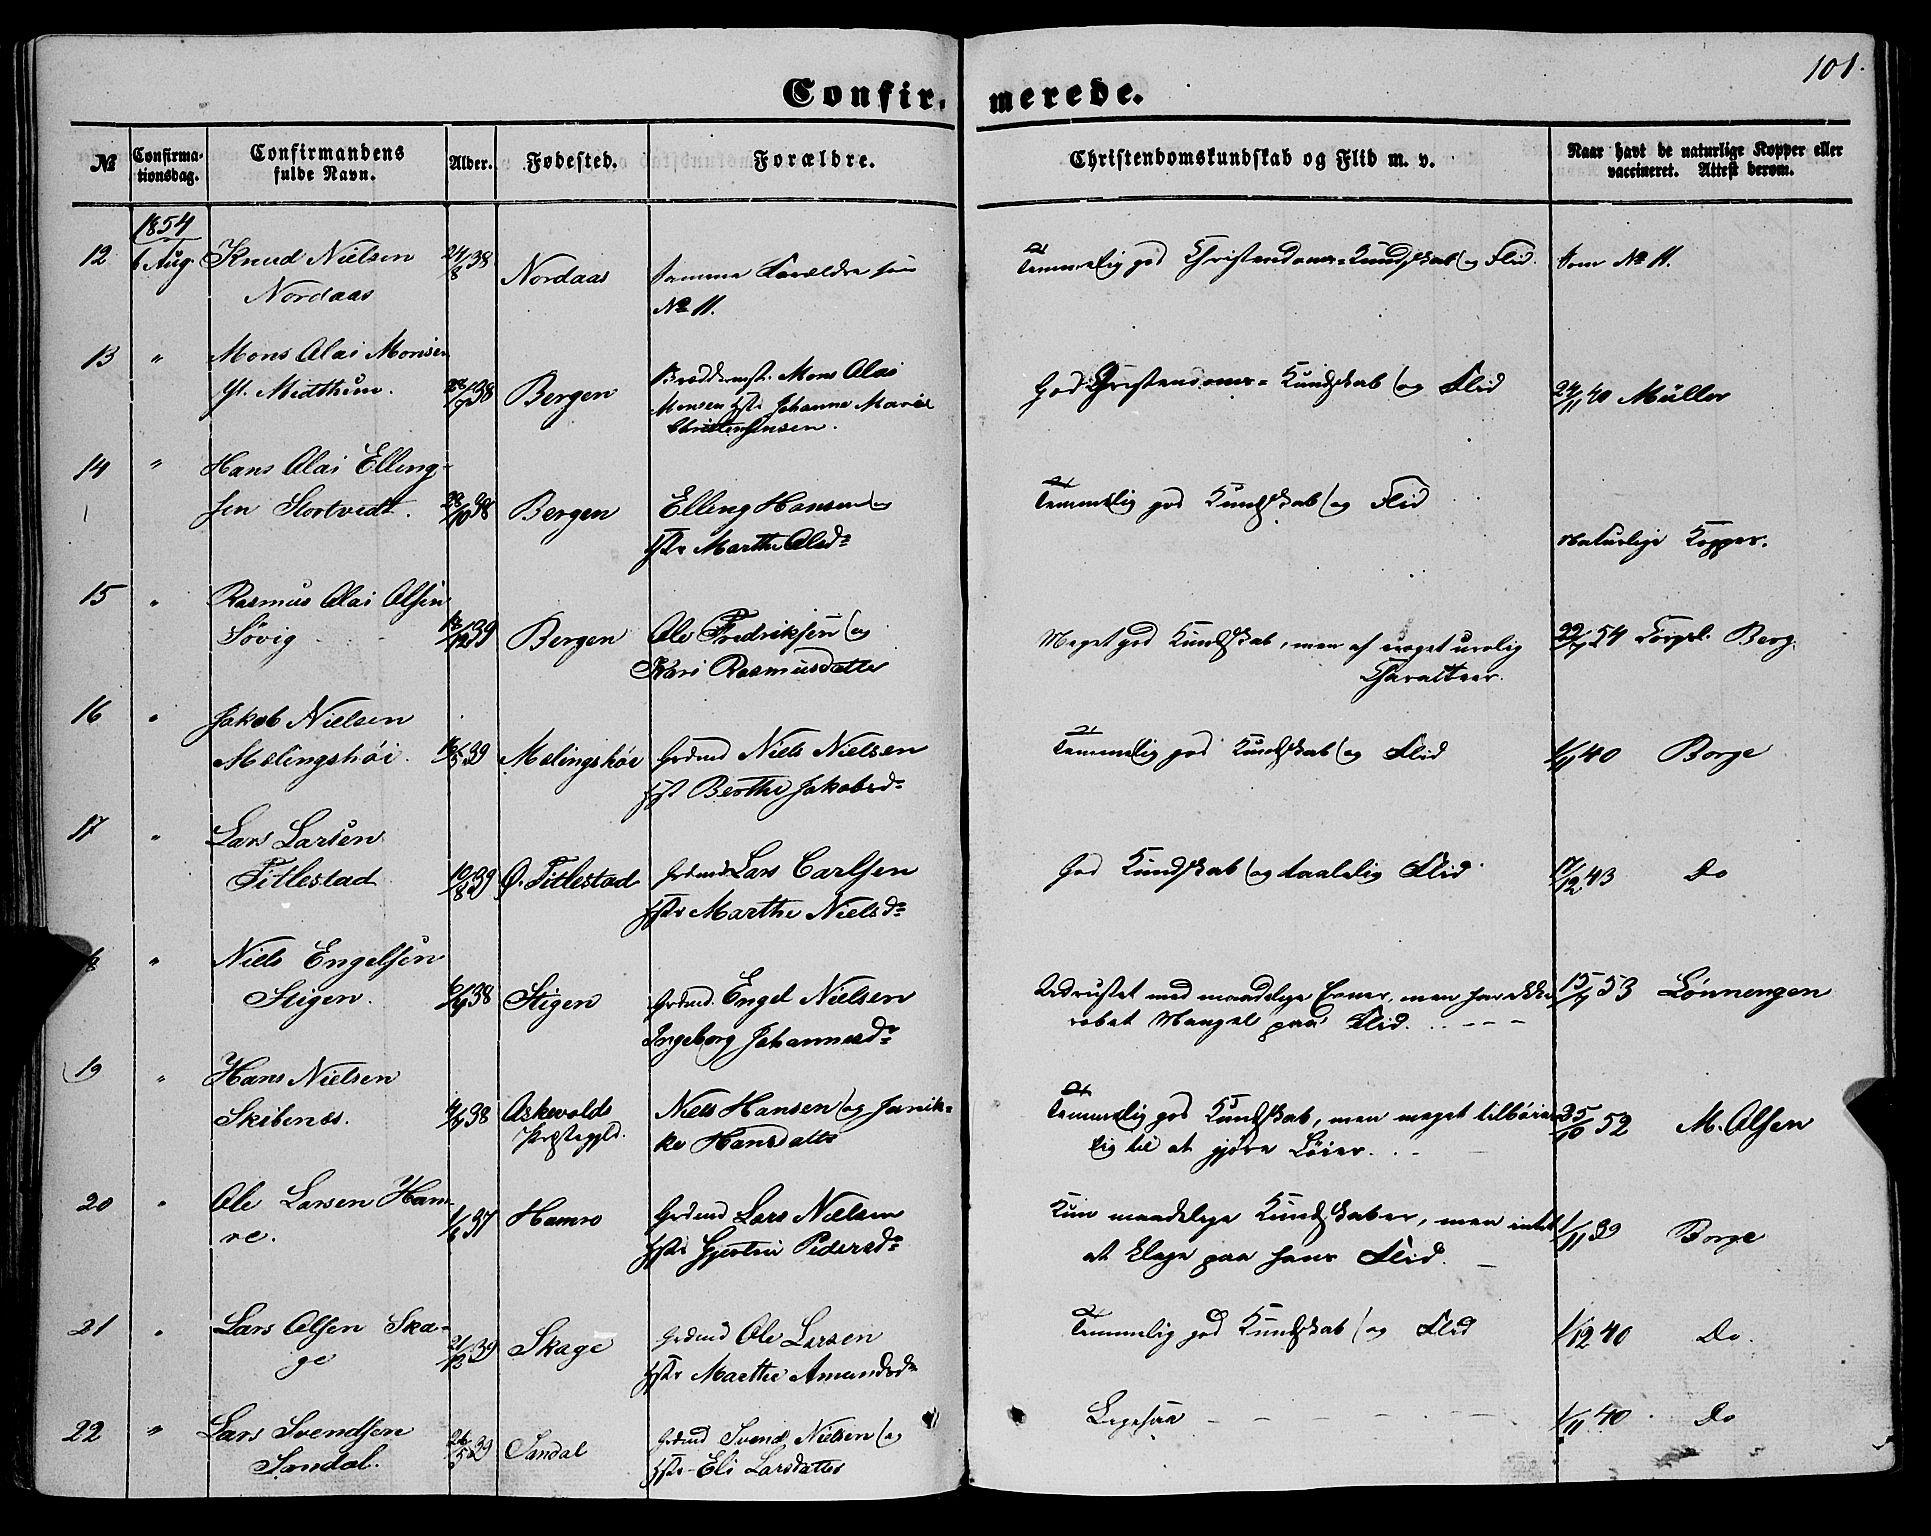 101.
Confir. merede.
№ Confirma-tionsdag. Confirmandens fulde Navn. Alder. Fødested. Forældre. Christendomskundskab og Flid m. v. Naar havt de naturlige Kopper eller vaccineret. Attest derom.
1854
12 6 Aug. Knud Nielsen 24/8 38 Nordaas Samme Forældre som Temmelig god Christendoms-Kundskab og Flid. Som № 11.
Nordaas № 11.
13 " Mons Olai Monsen
Yt. Midthun. 38 Bergen Monsen Hstr Johanne Marie God Christendoms-Kundskab og Flid 24/11 40 Müller
14 " Hans Olai Elling-
sen Stortvedt. 28/10 38 Bergen Elling Hansen og Temmelig god Kundskab og Flid
Hstr Marthe Olsd. Naturlige Kopper.
15 " Rasmus Olai Olsen
Søvig 39 Bergen Ole Fredriksen og Meget god Kundskab, men af meget urolig 54 Berg.
Kari Rasmusdatter Charakteer.
16 " Jakob Nielsen
Mælingshøi. 39 Mælingshøi Grdmd Niels Nielsen Temmelig god Kundskab og Flid 1/11 40 Borge
Hst Berthe Jakobsd.
17 " Lars Larsen
Titlestad 10/8 39 Ø. Titlestad Grdmd Lars Carlsen God Kundskab og taalelig Flid 17/12 43 Do
Hstr Marthe Nielsd.
" Niels Engelsen
Stigen. 38 Stigen Grdmd. Engel Nielsen Udrustet med maadelige Evner, men har ikke 15/7 53 Lønnengen
Ingeborg Johannesd. røbet Mangel paa Flid.
19 " Hans Nielsen
Skibenes. 38 Askevolds Niels Hansen og Janik- Temmelig god Kundskab, men meget tilbøie- 25/10 52 M. Olsen
Præstegjld. ke Hansdatter lig til at gjøre Løier.
20 " Ole Larsen Ham-
re. 37 Hamre Grdmd Lars Nielsen Kun maadelige Kundskaber, men intet 1/11 39 Borge
Hstr Gjertrui Pedersd. at klage paa hans Flid.
21 " Lars Olsen Ska-
ge 21/12 39 Skage Grdmd Ole Larsen Temmelig god Kundskab og Flid 1/12 40 Do.
Hstr Marthe Amundsd.
22 " Lars Svendsen
Sandal. 26/5 39 Sandal Grdmd Svend Nielsen og Ligesaa 1/11 40 Do
Hstr Eli Larsdatter